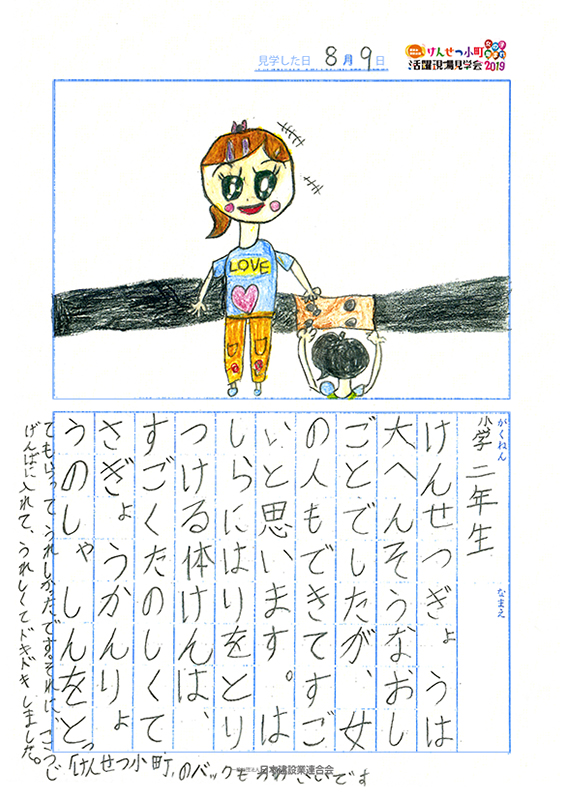 見学した日 8月9日
けんせつ小町
活躍現場見学会 2019
LOVE
がくねん
小学 二年生
なまえ
けんせつぎょうは
大へんそうなおし
ごとでしたが、女
の人もできてすご
いと思います。は
しらにはりをとり
つける体けんは、
すごくたのしくて
さぎょうかんりょ
うのしゃしんをとっ
てもらってうれしかったです。それに、こうじ
げんばに入れて、うれしくてドキドキしました。
「けんせつ小町」のバックもかわいいです
日本建設業連合会